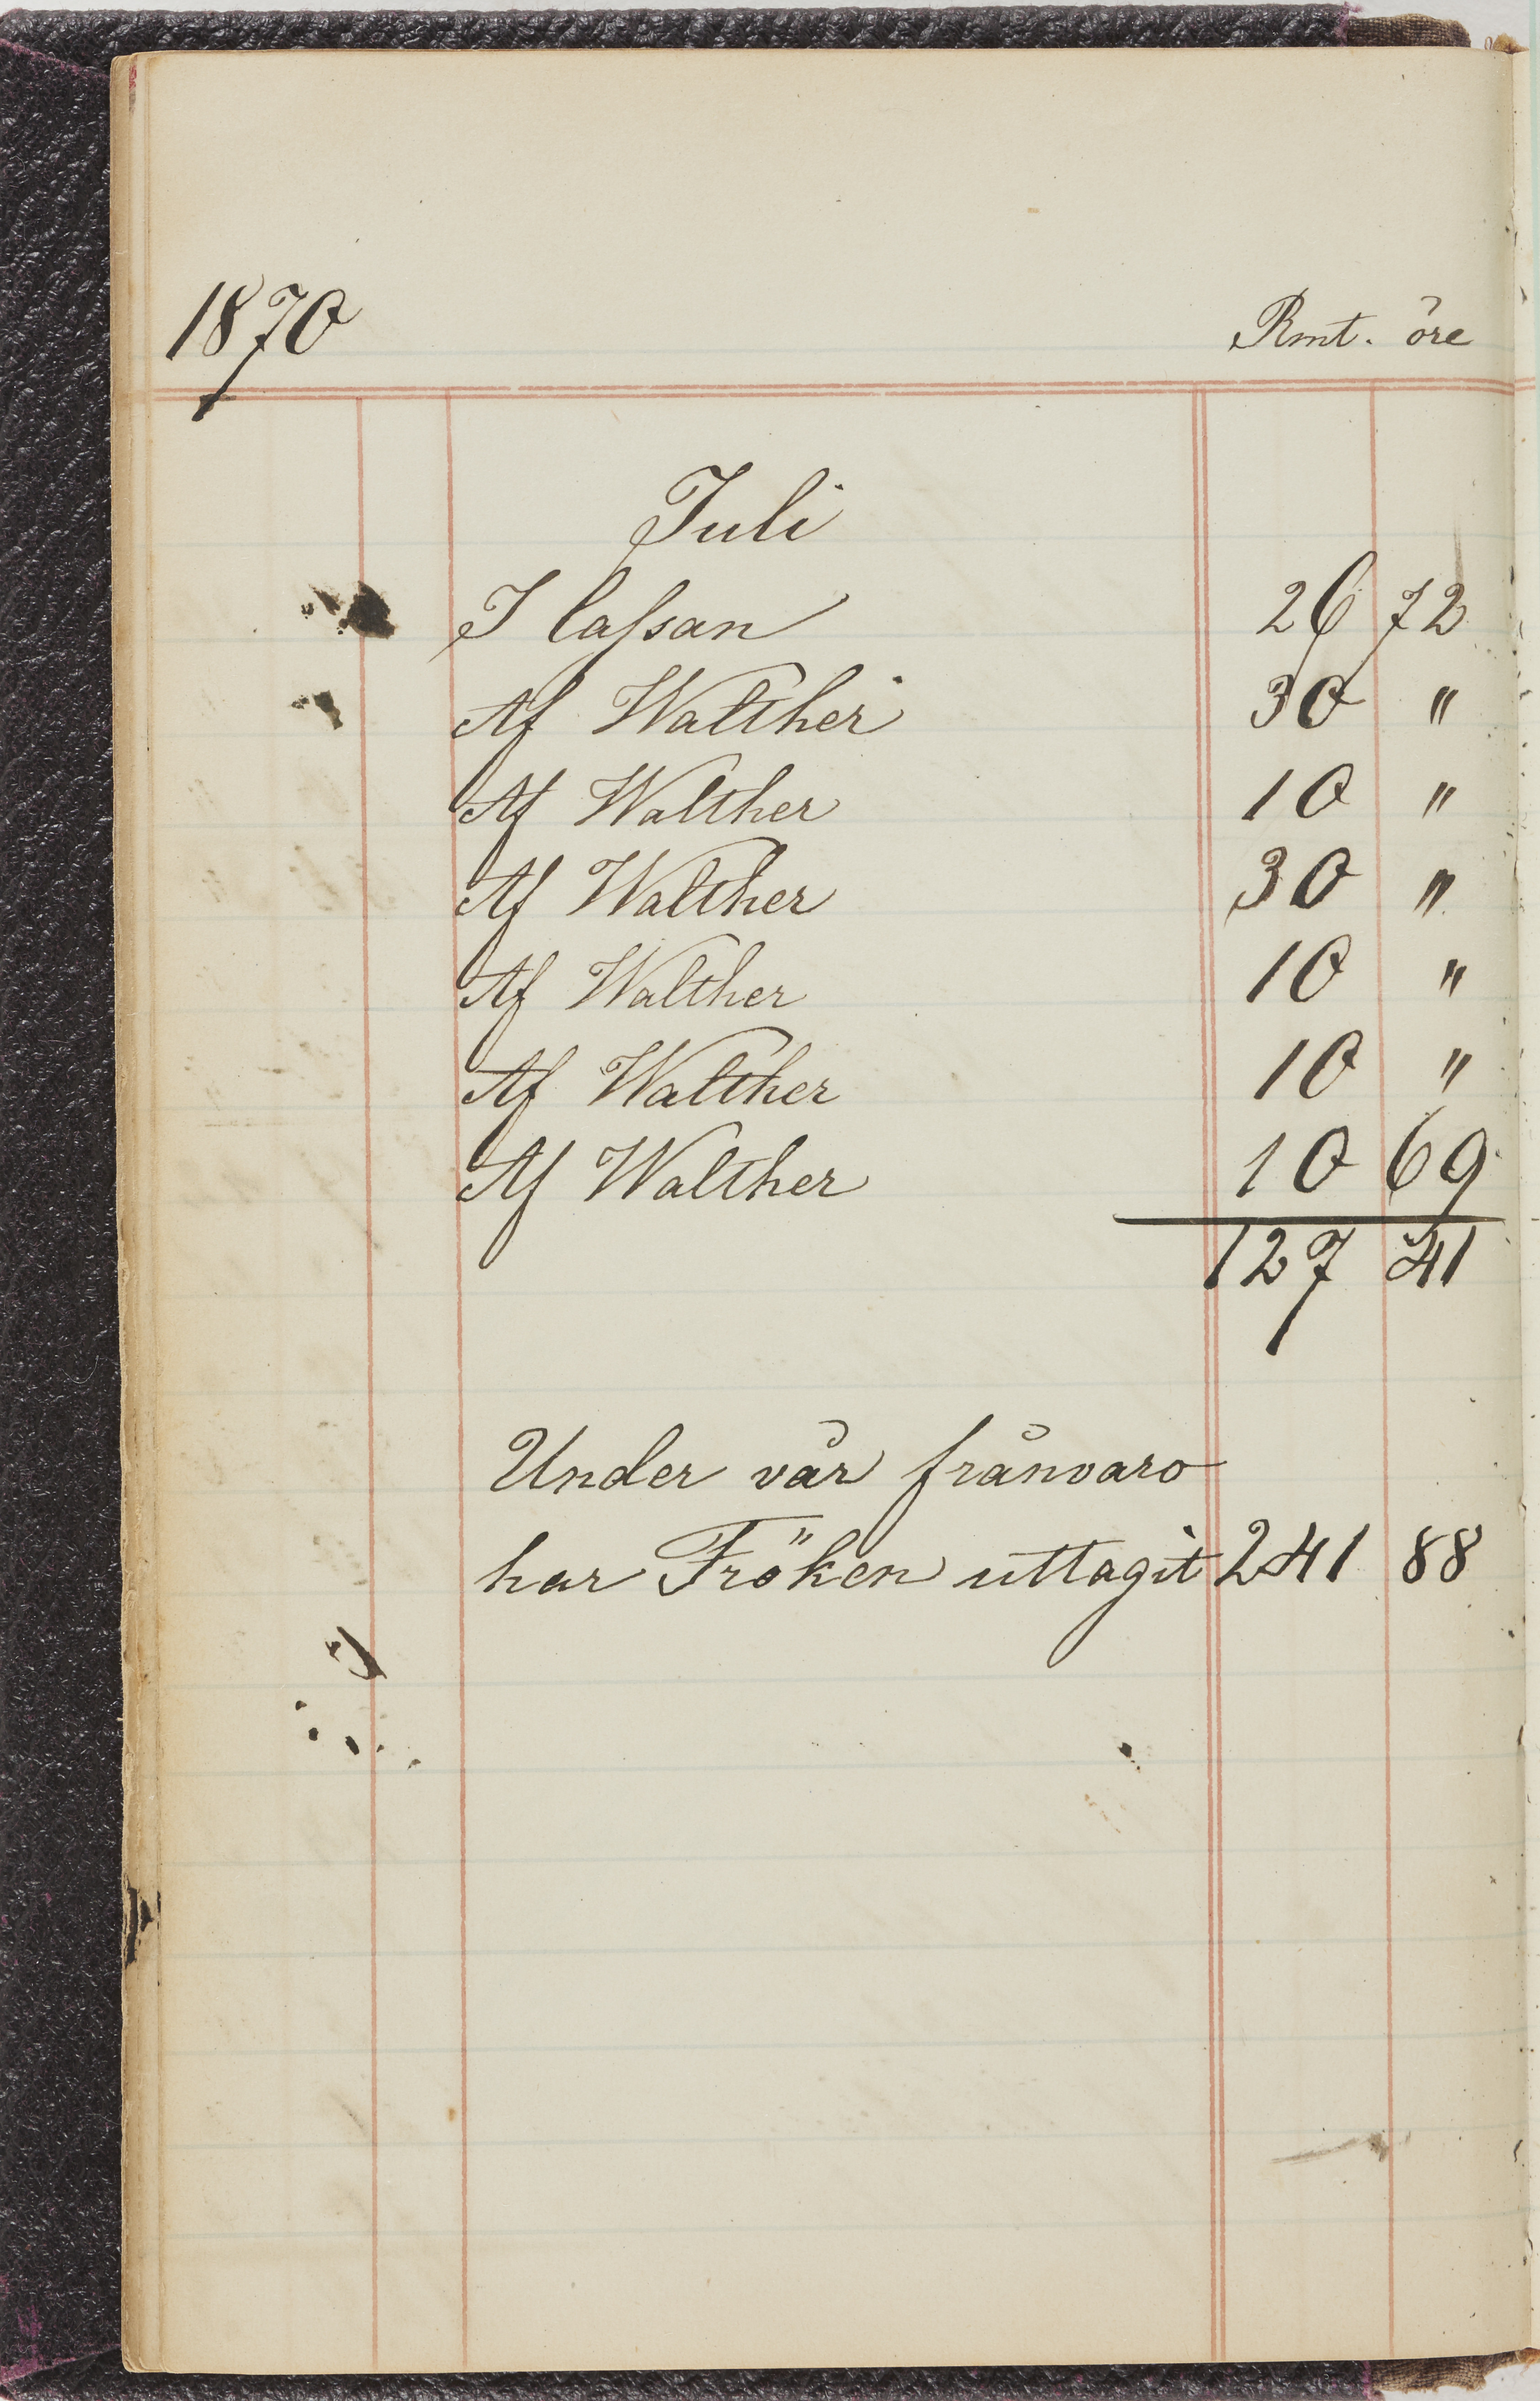 1870 Rmt. öre
Juli
I Cassan 26 72
Af Walther 30 "
Af Walther 10 "
Af Walther 30 "
Af Walther 10 "
Af Walther 10 "
Af Walther 10 69
127 41
Under vår frånvaro
har Fröken uttagit 241 88